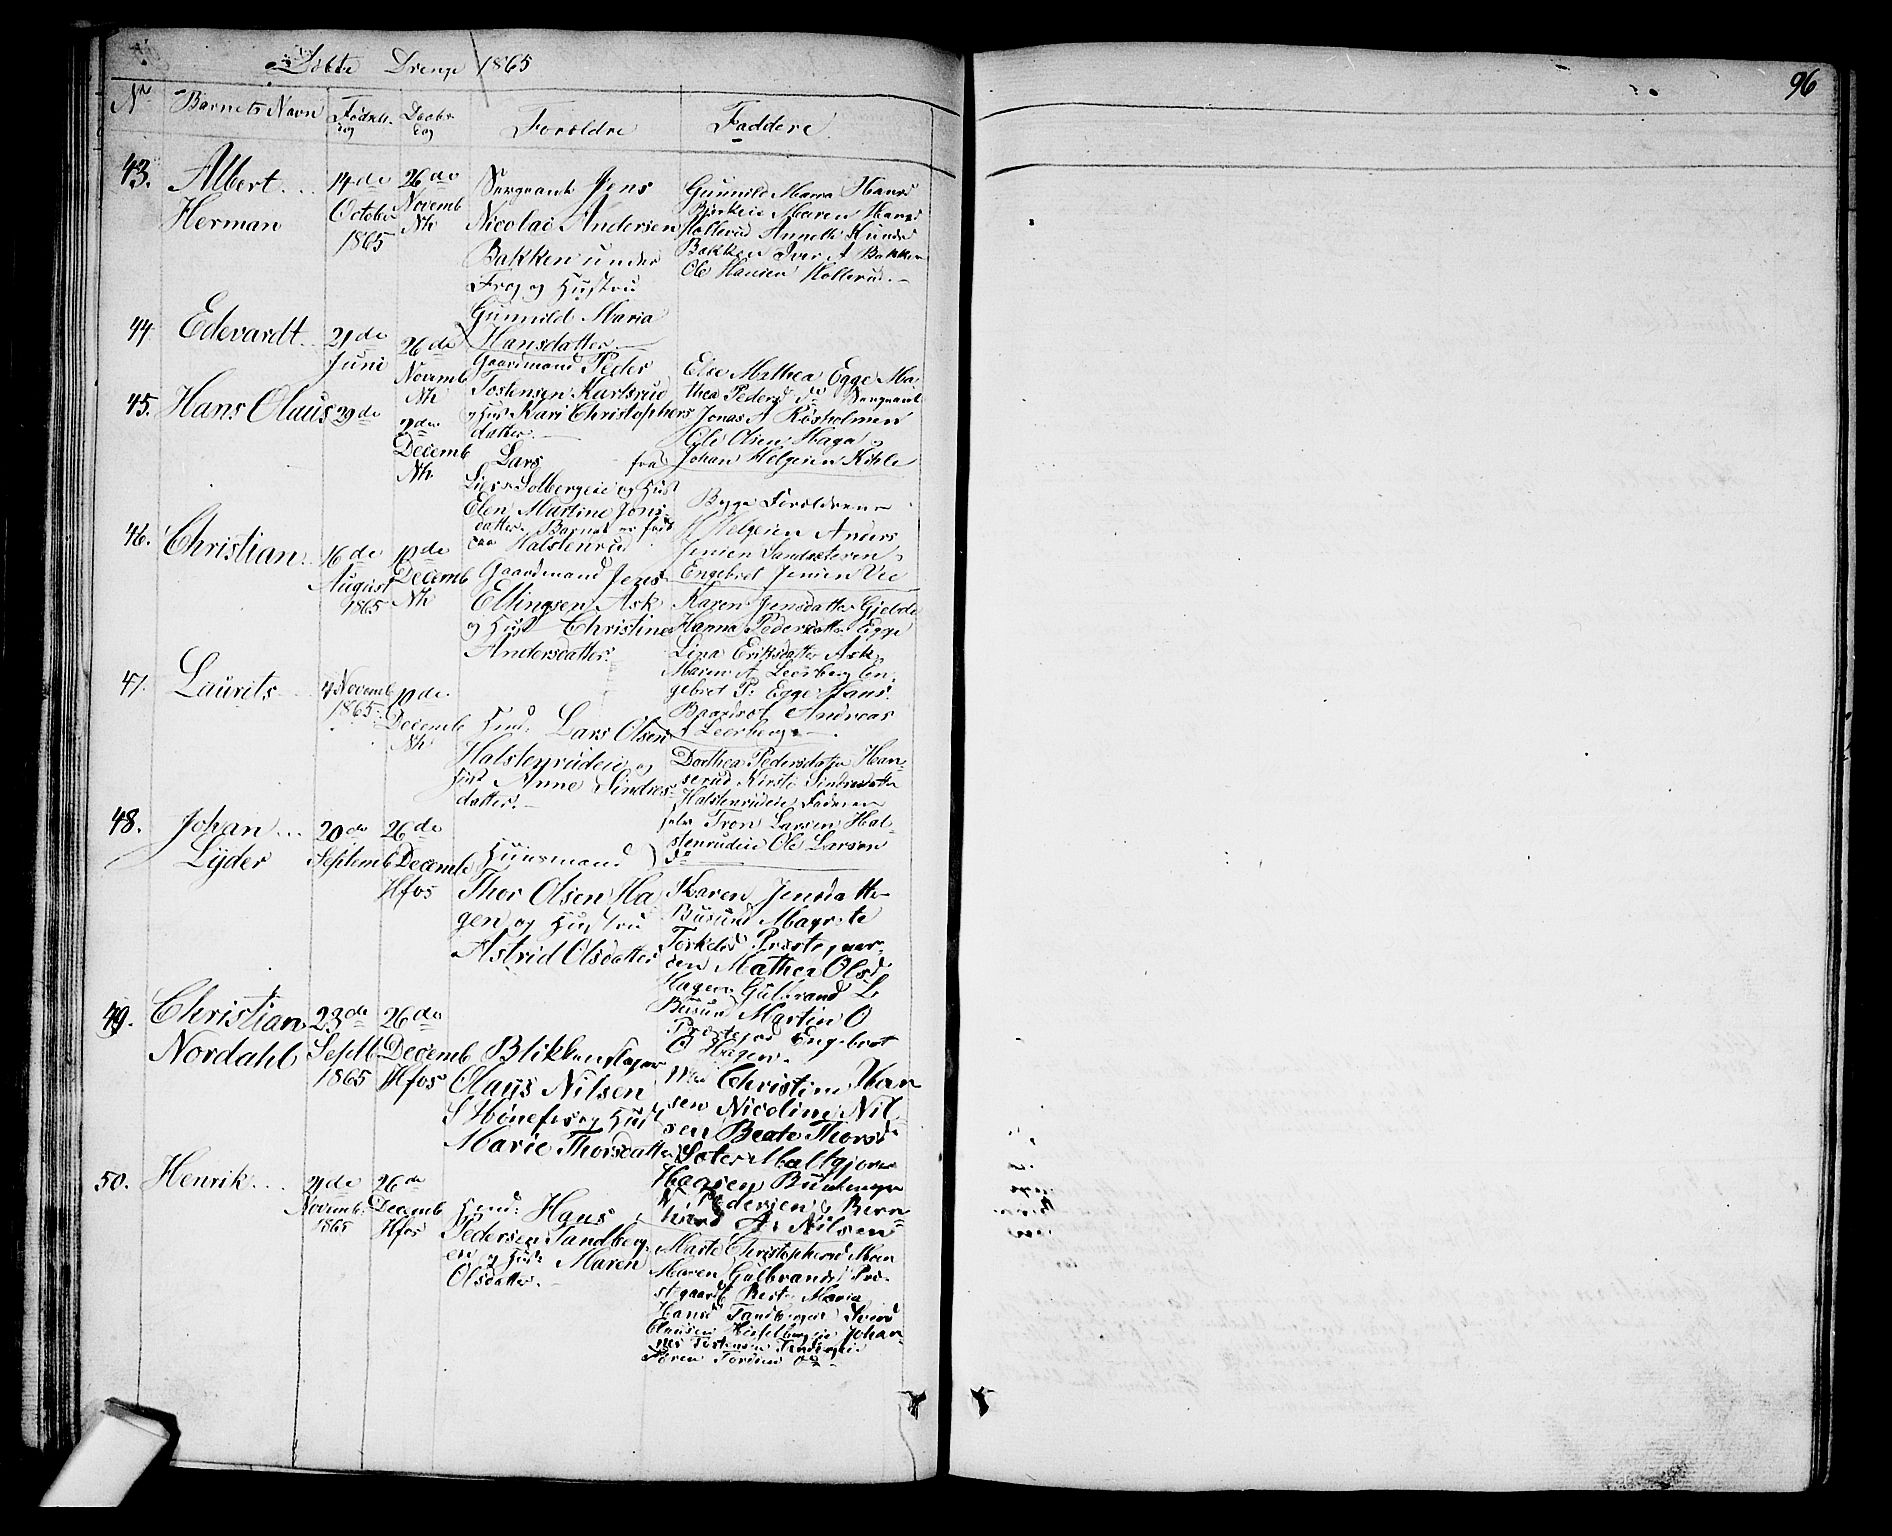 Døbte Drenge 1865
96
No
Barnets Navn
Fødsels dag
Daabs dag
Forældre
Faddere
43.
Albert
Herman
14de
October
1865
26de
Novemb
Nh
Sergeant Jens
Nicolai Andersen
Bakken under
Frog og Hustru
Gunnild Maria
Hansdatter.
Gunnild Maria Hansd
Maren Hansd
Kollerud Annette Knudsd
Bakken Iver A Bakken
Ole Hansen Kollerud.
44
Edevardt
21de
Juni
26de
Novemb
Nh
Gaardmand Peder
Tostensen Karlsrud
og Hust Kari Christophers
datter.
Else Mathea Egge Ma-
thea Pedersd do Sergeant
Jonas A Røsholmen
Ole Olsen Haga
Johan Helgesen Kihle
45.
Hans Olaus
29de
2den
Decemb
Nh
Lars fra
Lier Solbergeie og Hust
Elen Martine Jons
datter. Barnet er født
paa Halstenrud
Begge Forældrene
H Helgesen Anders
Jensen Sandsæteren
Engebret Jensen Vee
46.
Christian
16de
August
1865
10de
Decemb
Nh
Gaardmand Jens
Ellingsen Ask
og Hust Christine
Andersdatter.
Karen Jensdatter Gjelde
Hanna Pedersdatter Egge
Lina Eriksdatter Ask
Maren A Leerberg En-
gebret P. Egge Hans
Andreas
A Leerberg
47.
Laurits
4 Novemb
1865
10de
Decemb
Nh
Husd: Lars Olsen
Halstenrudeie og
Hust Anne Sindres-
datter.
Dorthea Pedersdatter Han-
serud Kirsti Sindresdatter
Halstenrudeie Faderen
selv Tron Larsen Hal-
stenrudeie Ole Larsen
do
48.
Johan
Lyder
20de
Septemb
26de
Decemb
Hfos
Huusmand
Thor Olsen Ha
gen og Hustru
Astrid Olsdatter
Karen Jensdatter
Busund Magrete
Torkelsd Prestegaar-
den Mathea Olsd
Hagen Gulbrand L
Busund Martin O
Engebret
O Hagen.
49.
Christian
Nordahl
23de
Septb
1865
26de
Decemb
Hfos
Blikkenslager
Olaus Nilsen
S Hønefos og Hust
Marie Thorsdatter
Christine Han
sen Nicoline Nil
sen Beate Thorsd
Sæter
Haagen
Pedersen Bern
hard A. Nilsen
50.
Henrik
21de
Novemb.
1865
26de
Decemb
Hfos
Husd: Hans
Pedersen Tandberg
ei og Hust Maren
Olsdatter.
Marte Christophersd Moen
Maren Gulbrandsd Præ-
stegaard Berte Maria
Hansd Tandbergeie Svend
Clausen Johan-
nes Tostensen Tandbergeie
Søren